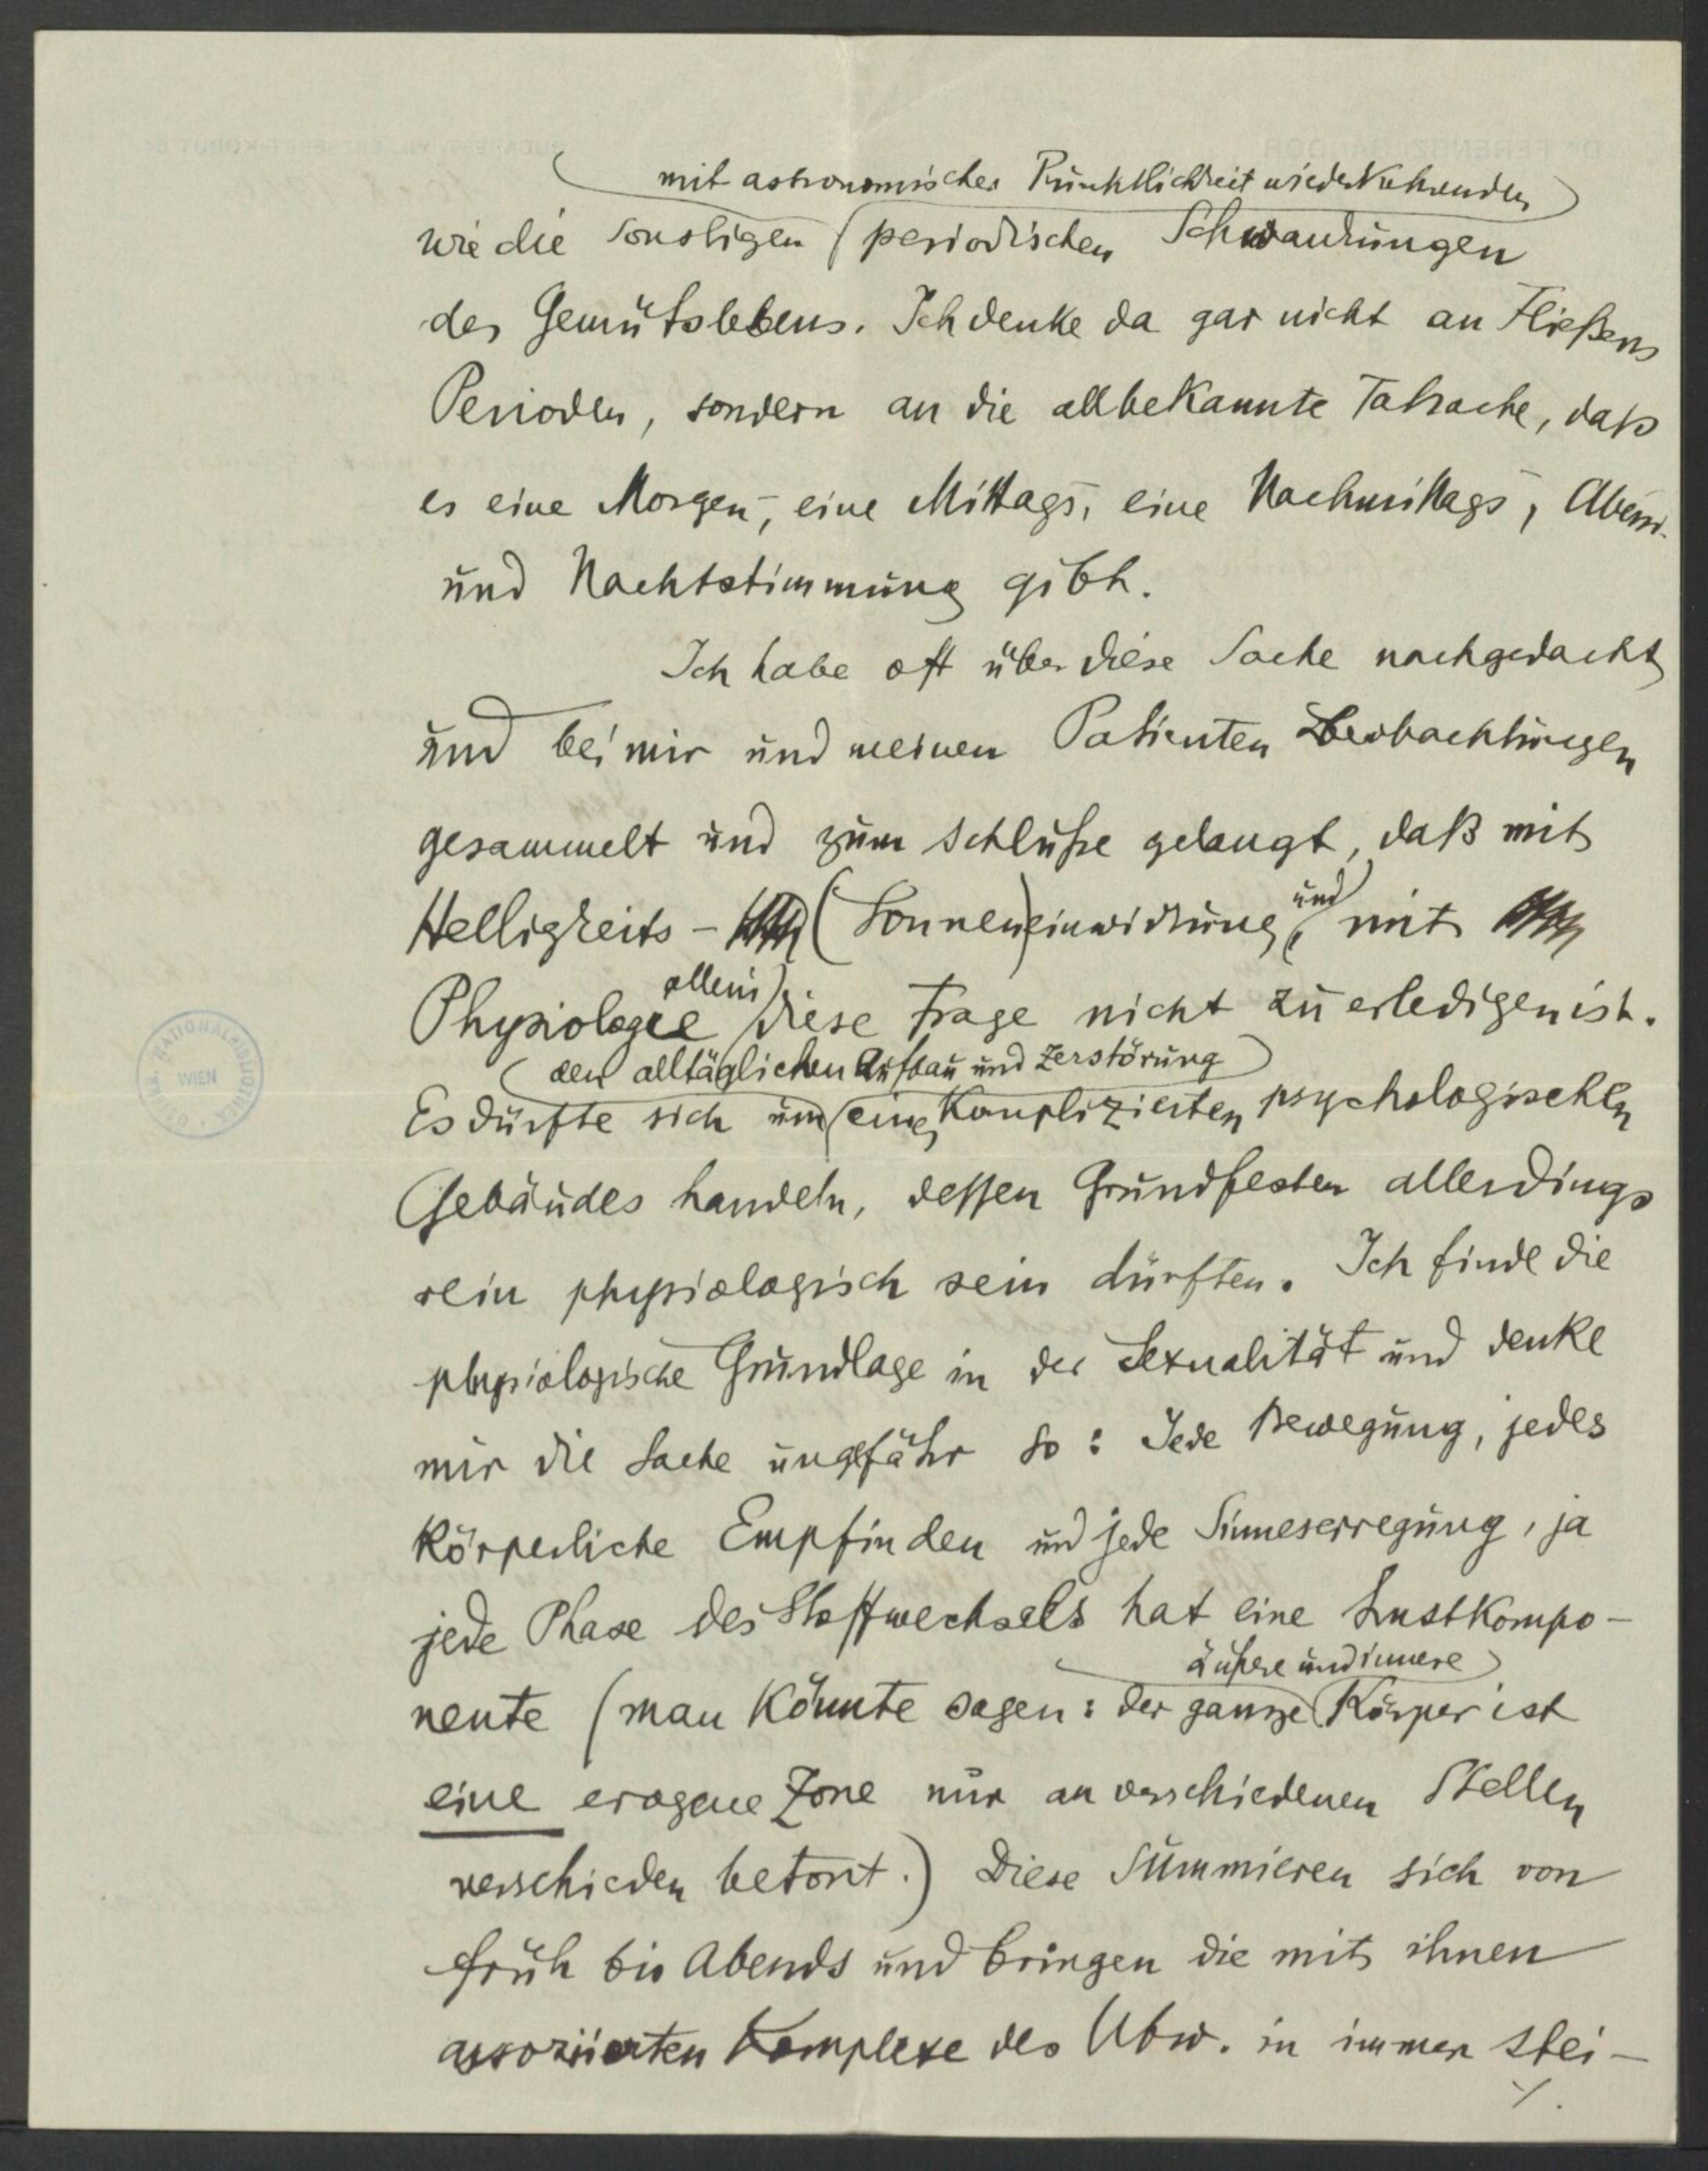 mit astronomischer Pünktlichkeit wiederkehrenden
wie die sonstigen periodischen Schwankungen
des Gemütslebens. Ich denke da gar nicht an Fließens
Perioden, sondern an die allbekannte Tatsache, daß
es eine Morgen-, eine Mittags-, eine Nachmittags-, Abend-
und Nachtstimmung gibt.
Ich habe oft über diese Sache nachgedacht
und bei mir und meinen Patienten Beobachtungen
gesammelt und zum Schluße gelangt, daß mit
Helligkeits- (Sonnen)einwirkung und mit
Physiologie allein diese Frage nicht zu erledigen ist.
den alltäglichen Aufbau und Zerstörung
Es dürfte sich um eines komplizierten psychologischen
Gebäudes handeln, dessen Grundfesten allerdings
rein physiologisch sein dürften. Ich finde die
physiologische Grundlage in der Sexualität und denke
mir die Sache ungefähr so: Jede Bewegung, jedes
körperliche Empfinden und jede Sinneserregung, ja
jede Phase des Stoffwechsels hat eine Lustkompo-
äußere und innere
nente (man könnte sagen: der ganze Körper ist
eine erogene Zone nur an verschiedenen Stellen
verschieden betont.) Diese summieren sich von
früh bis Abends und bringen die mit ihnen
assoziierten Komplexe des Ubw. in immer stei-
./.
ÖSTERR. NATIONALBIBLIOTHEK
WIEN